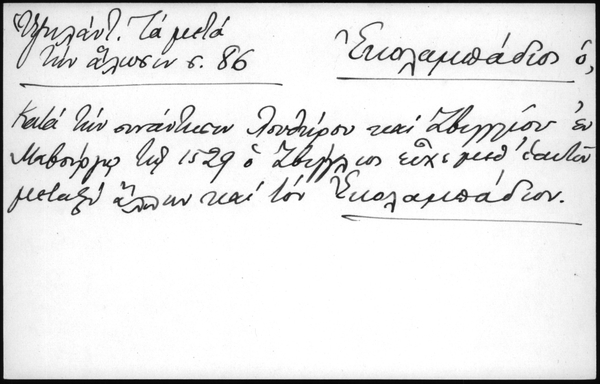 Ὑψηλάντ. Τά μετά
τήν ἅλωσιν σ. 86
Ἐκολαμπάδιος ὁ,
Κατά τήν συνάντησιν Λουθήρου καί Ζβιγγλίου ἐν
Μαρβούργῳ τῷ 1529 ὁ Ζβίγγλιος εἶχε μεθ' ἑαυτοῦ
μεταξύ ἄλλων καί τόν Ἐκολαμπάδιον.